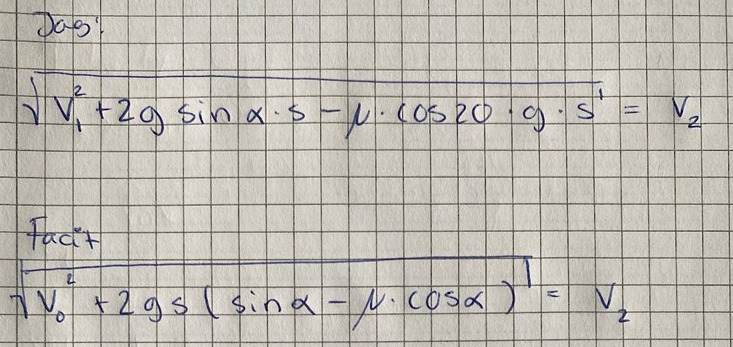 Jag:
√(V₁² + 2g sin α · s − μ · cos 20 · g · s) = V₂
Facit
√(V₀² + 2gs (sin α − μ · cos α)) = V₂